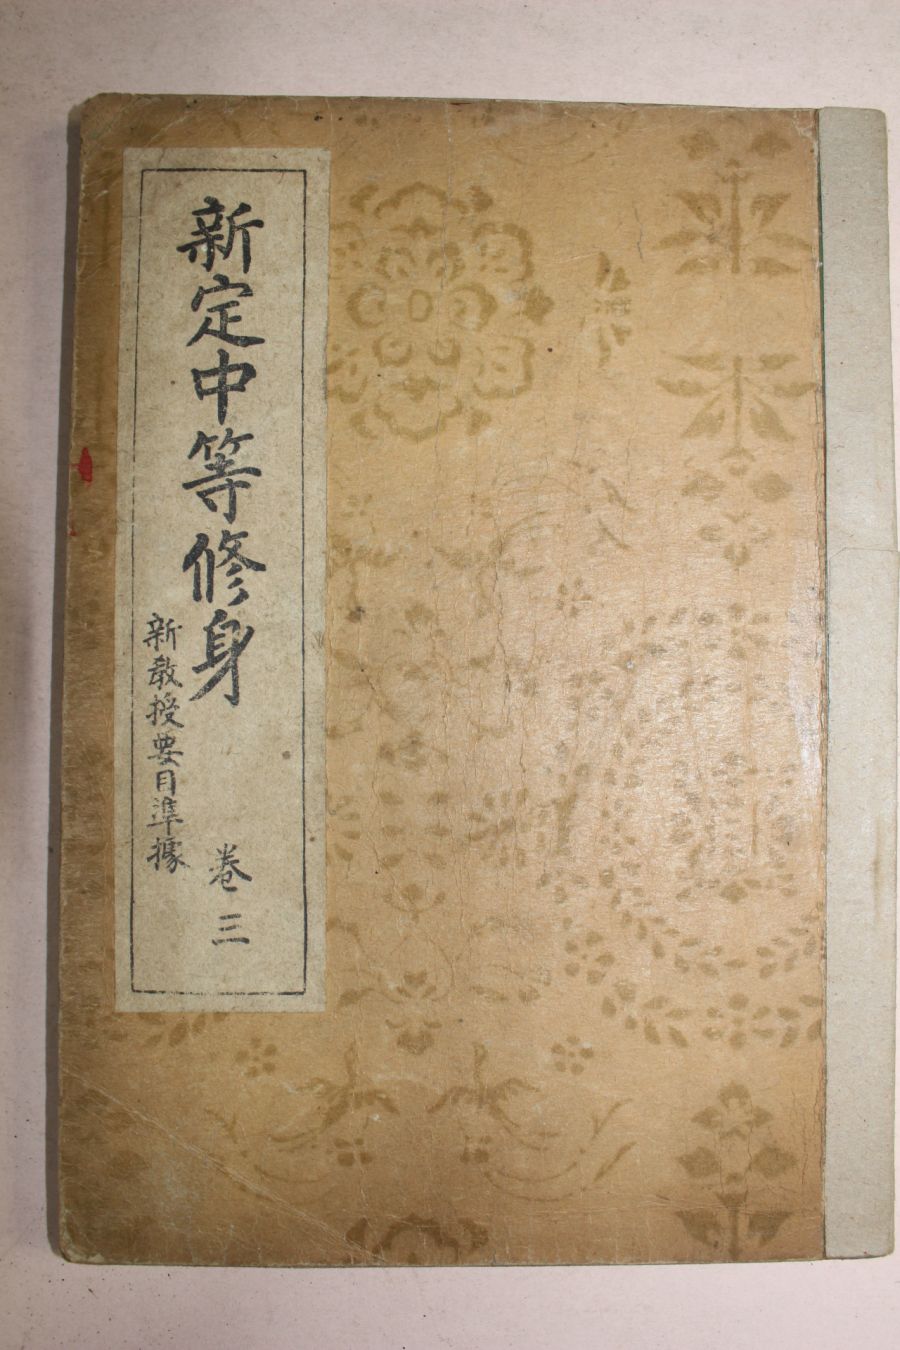 新定中等修身
巻三
新教授要目準據